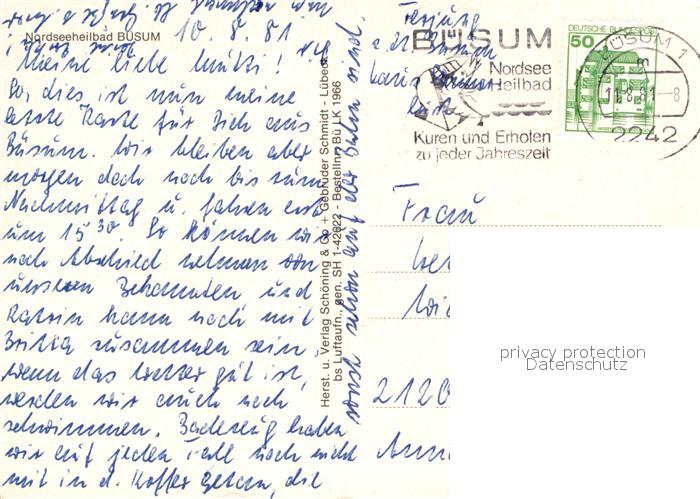 Nordseeheilbad BÜSUM
10.8.81
Meine liebe Mutti!
So, dies ist nun meine
letzte Karte für Dich aus
Büsum. Wir bleiben aber
morgen doch noch bis zum
Nachmittag u. fahren erst
um 15³⁰. So können wir
noch Abschied nehmen von
unseren Bekannten und
Katrin kann noch mit
Britta zusammen sein.
Wenn das Wetter gut ist,
werden wir auch noch
schwimmen. Badezeug haben
wir auf jeden Fall noch nicht
mit in d. Koffer getan, die
sonst schon auf der Bahn sind.
Herst. u. Verlag Schöning & Co + Gebrüder Schmidt - Lübeck
bs Luftaufn., gen. SH 1-42622 - Bestellnr. Bü LK 1966
BÜSUM
Nordsee
Heilbad
Kuren und Erholen
zu jeder Jahreszeit
DEUTSCHE BUNDESPOST
50
BÜSUM 1
11.8.81-8
2242
Frau
2120
privacy protection
Datenschutz